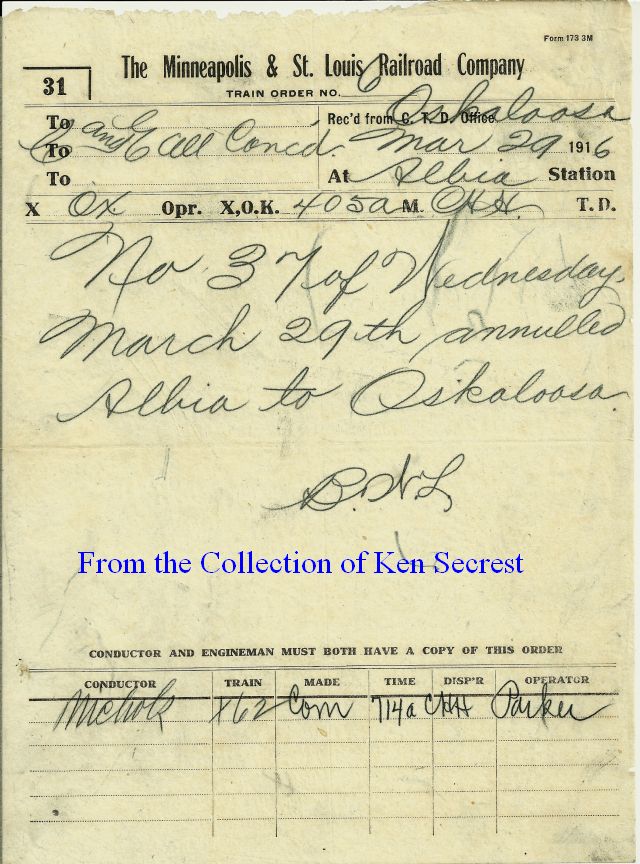 Form 173 3M
31
The Minneapolis & St. Louis Railroad Company
TRAIN ORDER NO. 6
Rec'd from C. T. D. Office Oskaloosa
To
To C and E all Concd.
To
Mar 29 1916
At Albia Station
X OX Opr. X,O.K. 405a M. CHH T.D.
No 37 of Wednesday
March 29th annulled
Albia to Oskaloosa.
From the Collection of Ken Secrest
CONDUCTOR AND ENGINEMAN MUST BOTH HAVE A COPY OF THIS ORDER
CONDUCTOR TRAIN MADE TIME DISP'R OPERATOR
Nichols X62 Com 714a CHH Parker